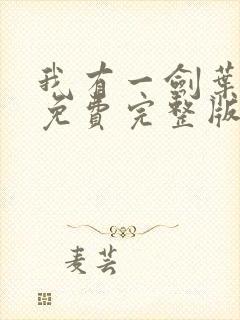 我有一剑葉
免费完整版
麦芸